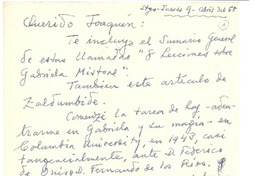 Stgo-Jueves 9-Abril del 58
Querido Joaquín:
Te incluyo el Sumario general
de estas llamadas "8 Lecciones sobre
Gabriela Mistral".
También este artículo de
Zaldumbide.
Comenzé la tarea de hoy-aden-
trarme en Gabriela y su magia- en
Columbia University, en 1943, casi
tangencialmente, ante D. Federico
de Onís y D. Fernando de los Ríos.